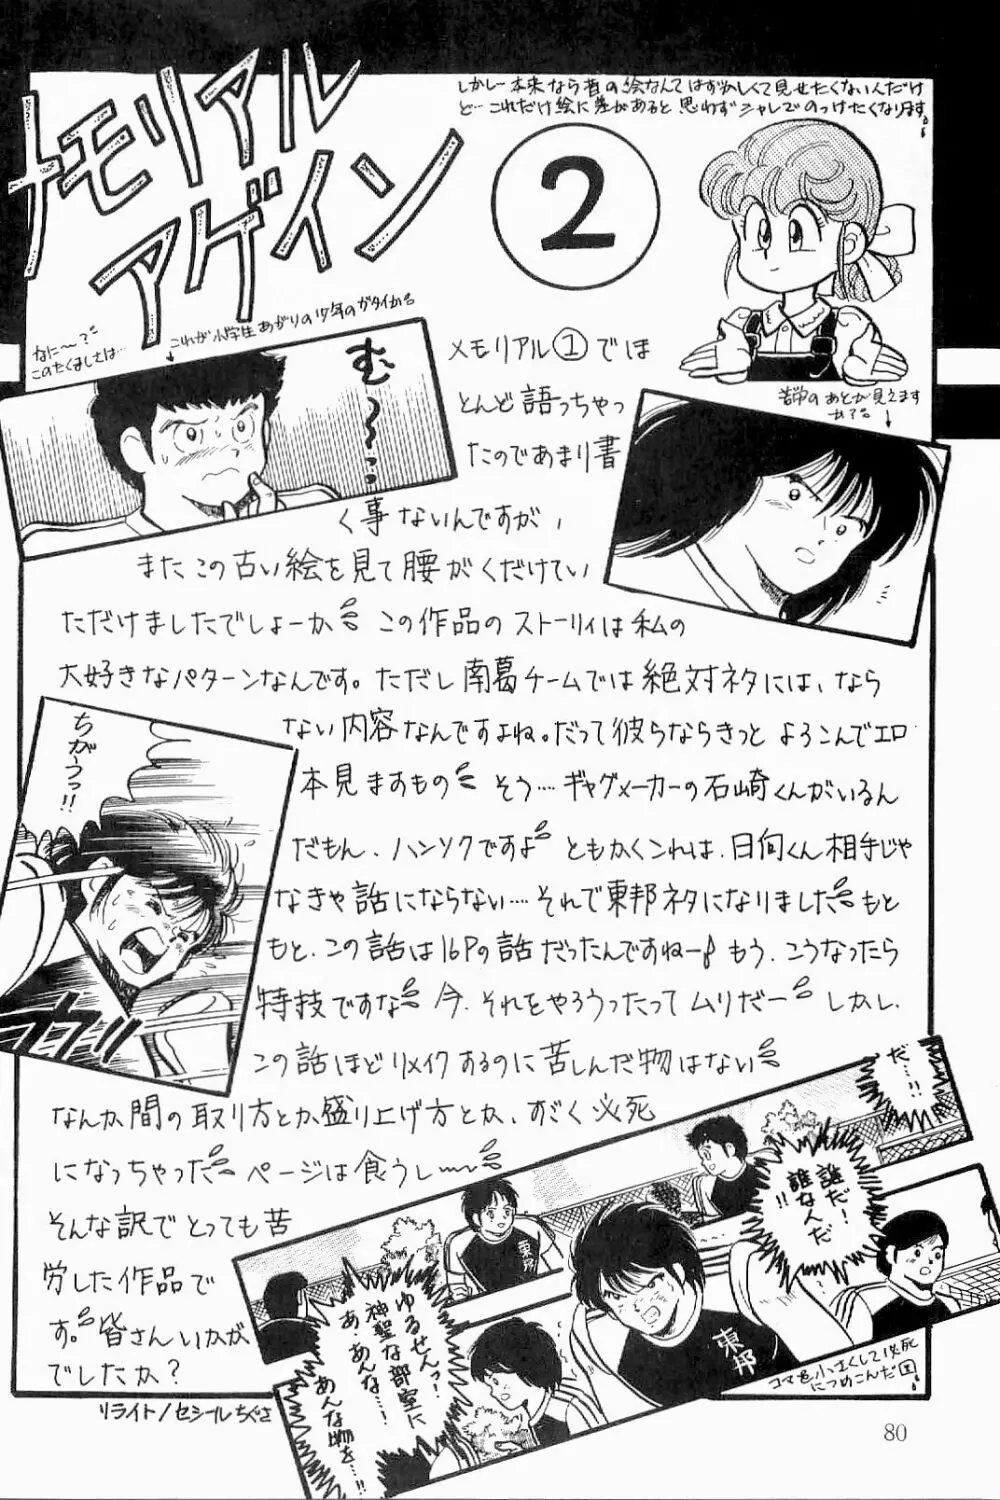 メモリアル
アゲイン
2
しかし本来なら昔の絵なんてはずかしくて見せたくないんだけ
ど…これだけ絵に差があると思わずシャレでのっけたくなります。
なに〜?
このたくましさは…
これが小学生あがりの少年のガタイか
む〜…
苦労のあとが見えます
か?
メモリアル①でほ
とんど語っちゃっ
たのであまり書
く事ないんですが、
またこの古い絵を見て腰がくだけてい
ただけましたでしょーか この作品のストーリィは私の
大好きなパターンなんです。ただし南葛チームでは絶対ネタには、なら
ない内容なんですよね。だって彼らならきっとよろこんでエロ
本見ますもの そう…ギャグメーカーの石崎くんがいるん
だもん、ハンソクですよ ともかくこれは、日向くん相手じゃ
なきゃ話にならない…それで東邦ネタになりました もと
もと、この話は16Pの話だったんですねー もう、こうなったら
特技ですな 今、それをやろうったってムリだー しかし、
この話ほどリメイクするのに苦しんだ物はない
なんか間の取り方とか盛り上げ方とか、すごく必死
になっちゃった ページは食うし〜
そんな訳でとっても苦
労した作品で
す。皆さんいかが
でしたか?
リライト/セシールちぐさ
ちがうっ!!
だ…!!
誰だ!
誰なんだ
!!
ゆるせんっ!
神聖な部室に
あ、あんな…!
あんな物を…!!
東邦
東邦
コマを小さくして必死
につめこんだ図
80